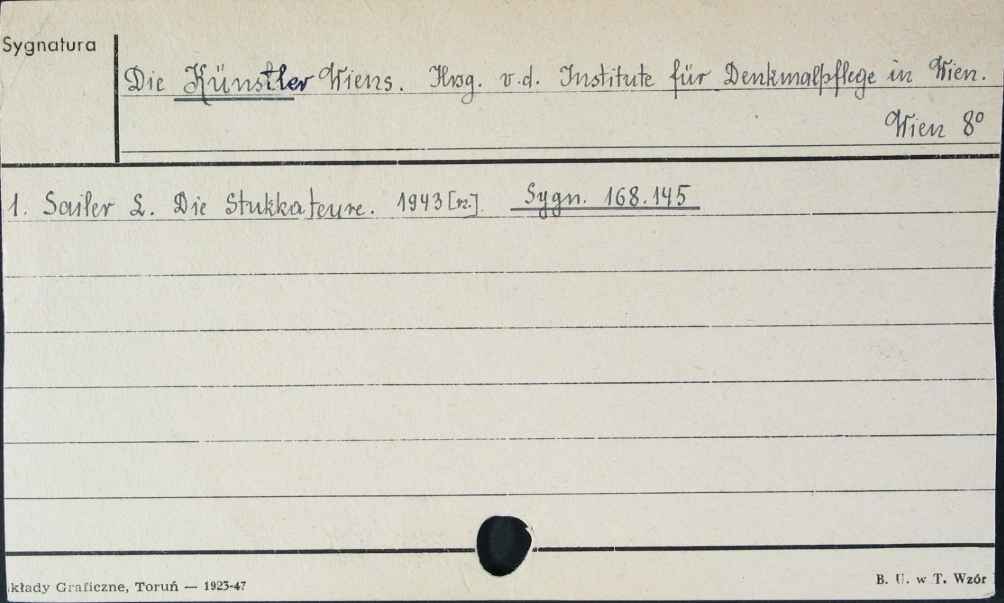 Sygnatura
Die Künstler Wiens. Hrsg. v.d. Institute für Denkmalpflege in Wien.
Wien 8°
1. Sailer L. Die Stukkateure. 1943 [rz.] Sygn. 168.145
kłady Graficzne, Toruń — 1923-47
B. U. w T. Wzór